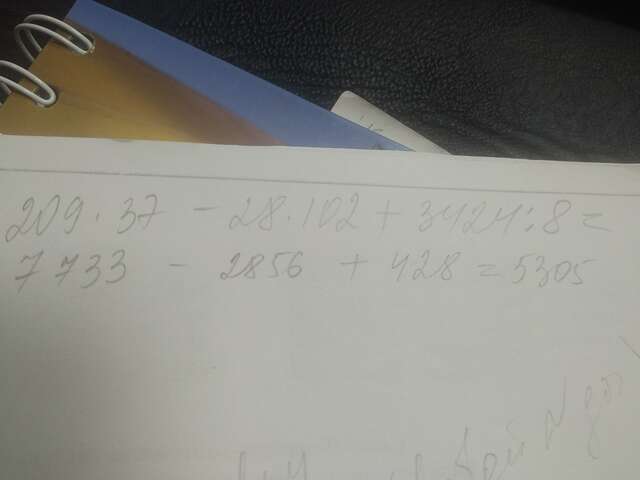 209 · 37 - 28 · 102 + 3424 : 8 =
7733 - 2856 + 428 = 5305